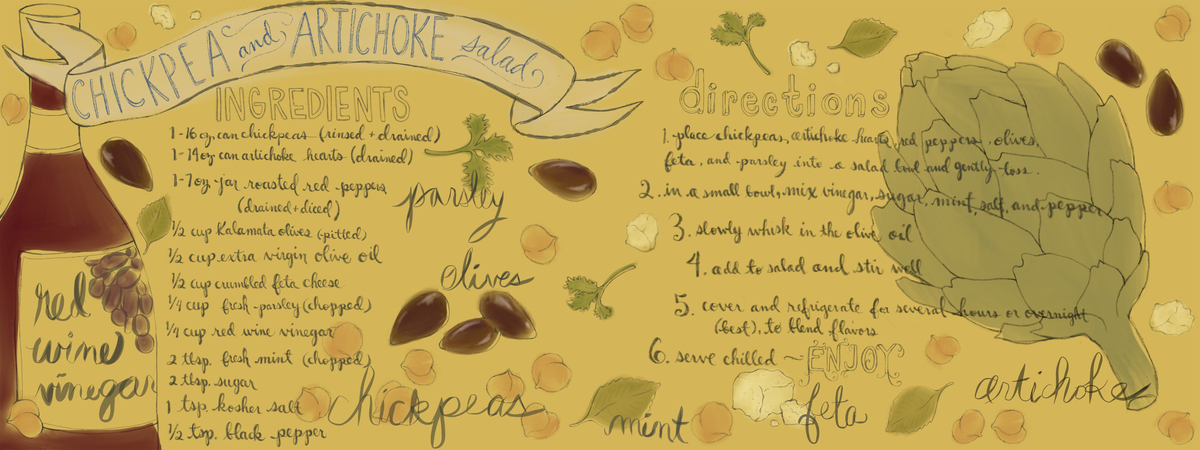 CHICKPEA and ARTICHOKE salad
INGREDIENTS
1-16 oz can chickpeas (rinsed + drained)
1-14oz can artichoke hearts (drained)
1-7oz jar roasted red peppers
(drained + diced)
1/2 cup Kalamata olives (pitted)
1/2 cup extra virgin olive oil
1/2 cup crumbled feta cheese
1/4 cup fresh parsley (chopped)
1/4 cup red wine vinegar
2 tbsp. fresh mint (chopped)
2 tbsp. sugar
1 tsp. kosher salt
1/2 tsp. black pepper
red
wine
vinegar
parsley
olives
chickpeas
mint
directions
1. place chickpeas, artichoke hearts, red peppers, olives,
feta, and parsley into a salad bowl and gently toss.
2. in a small bowl, mix vinegar, sugar, mint, salt, and pepper
3. slowly whisk in the olive oil
4. add to salad and stir well
5. cover and refrigerate for several hours or overnight
(best), to blend flavors
6. serve chilled ~ ENJOY
feta
artichoke